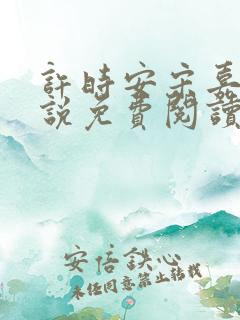 許時安宋嘉
說免費閱讀
安信鉄心
未经同意禁止转载